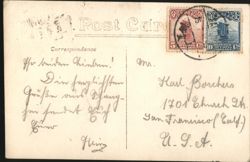 Post Card
Correspondence
Ihr beiden Lieben!
Die herzlichsten
Grüße aus Shang-
hai sendet Euch
Euer
Mr.
Karl Borchers
1701 Church St.
San Francisco (Calif.)
U. S. A.